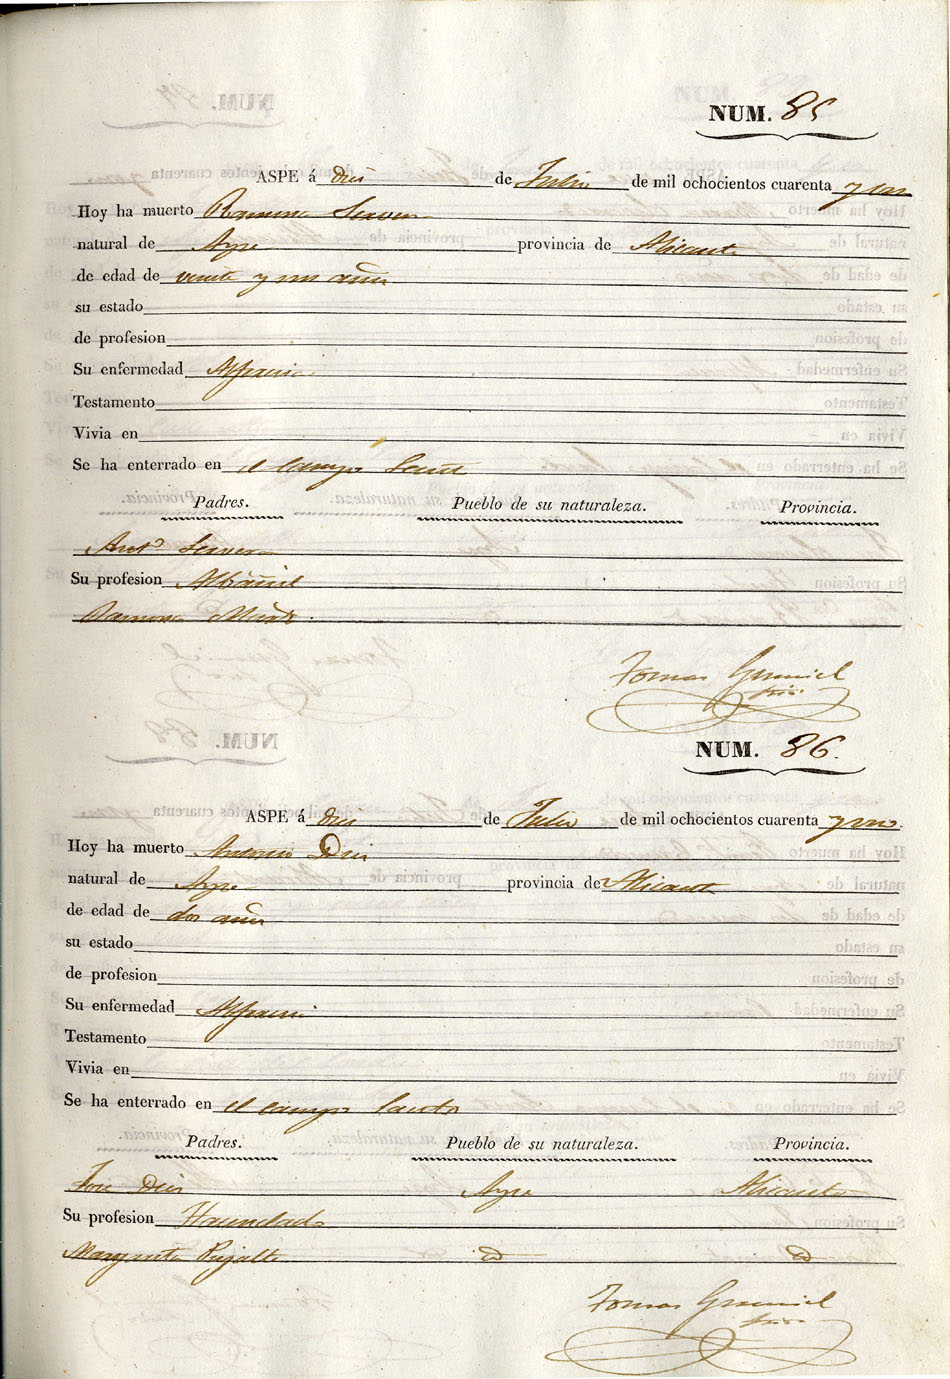 NUM. 85
ASPE á diez de Julio de mil ochocientos cuarenta y uno
Hoy ha muerto Ramona
natural de Aspe provincia de Alicante
de edad de veinte y un años
su estado
de profesion
Su enfermedad
Testamento
Vivia en
Se ha enterrado en el campo Santo
Padres. Pueblo de su naturaleza. Provincia.
Antº
Su profesion Albañil
Ramona
Tomas
NUM. 86.
ASPE á diez de Julio de mil ochocientos cuarenta y uno.
Hoy ha muerto Antonio
natural de Aspe provincia de Alicante
de edad de dos años
su estado
de profesion
Su enfermedad
Testamento
Vivia en
Se ha enterrado en el campo Santo
Padres. Pueblo de su naturaleza. Provincia.
Jose Aspe Alicante
Su profesion Hacendado
Margarita Pujalte id id
Tomas